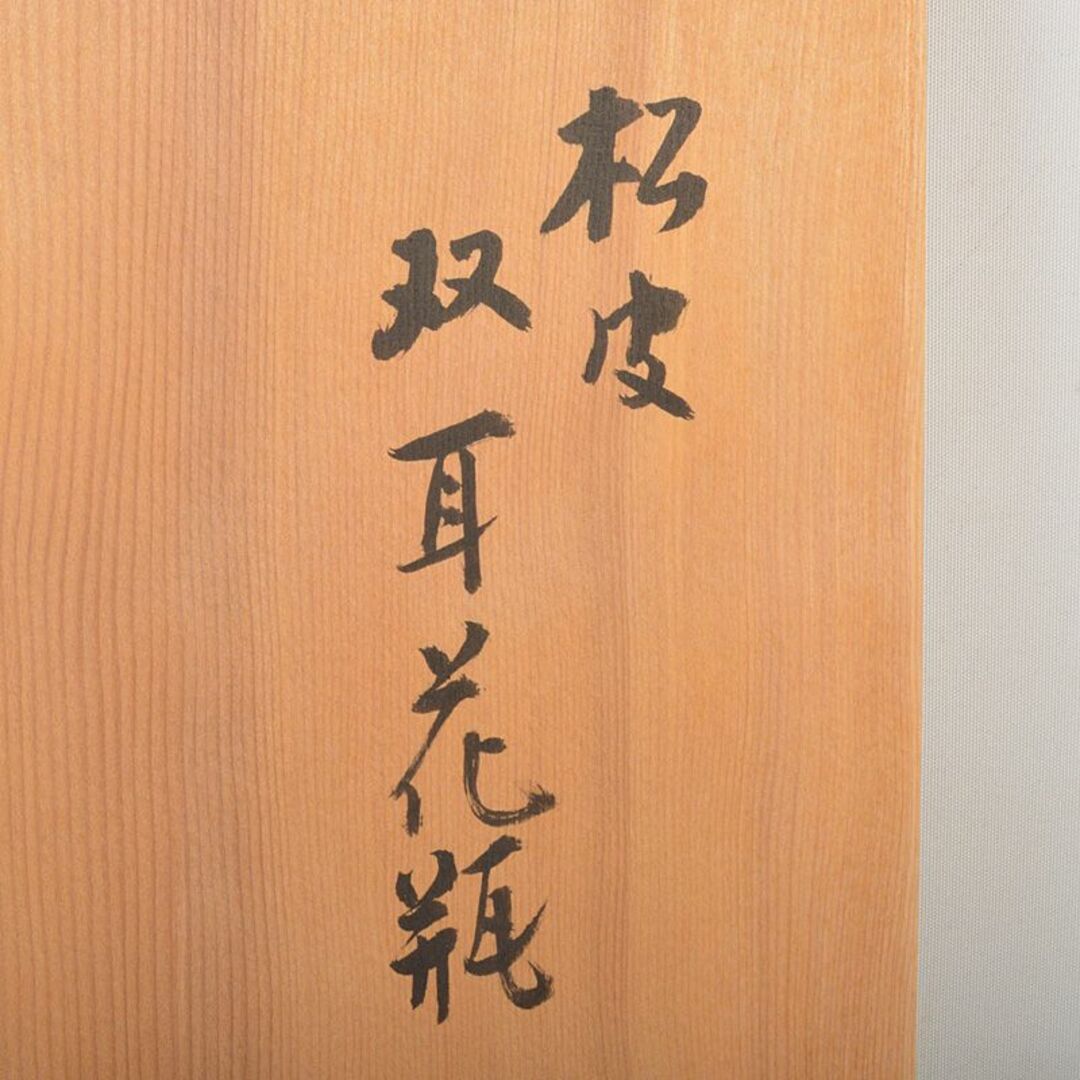 松皮
双耳花瓶